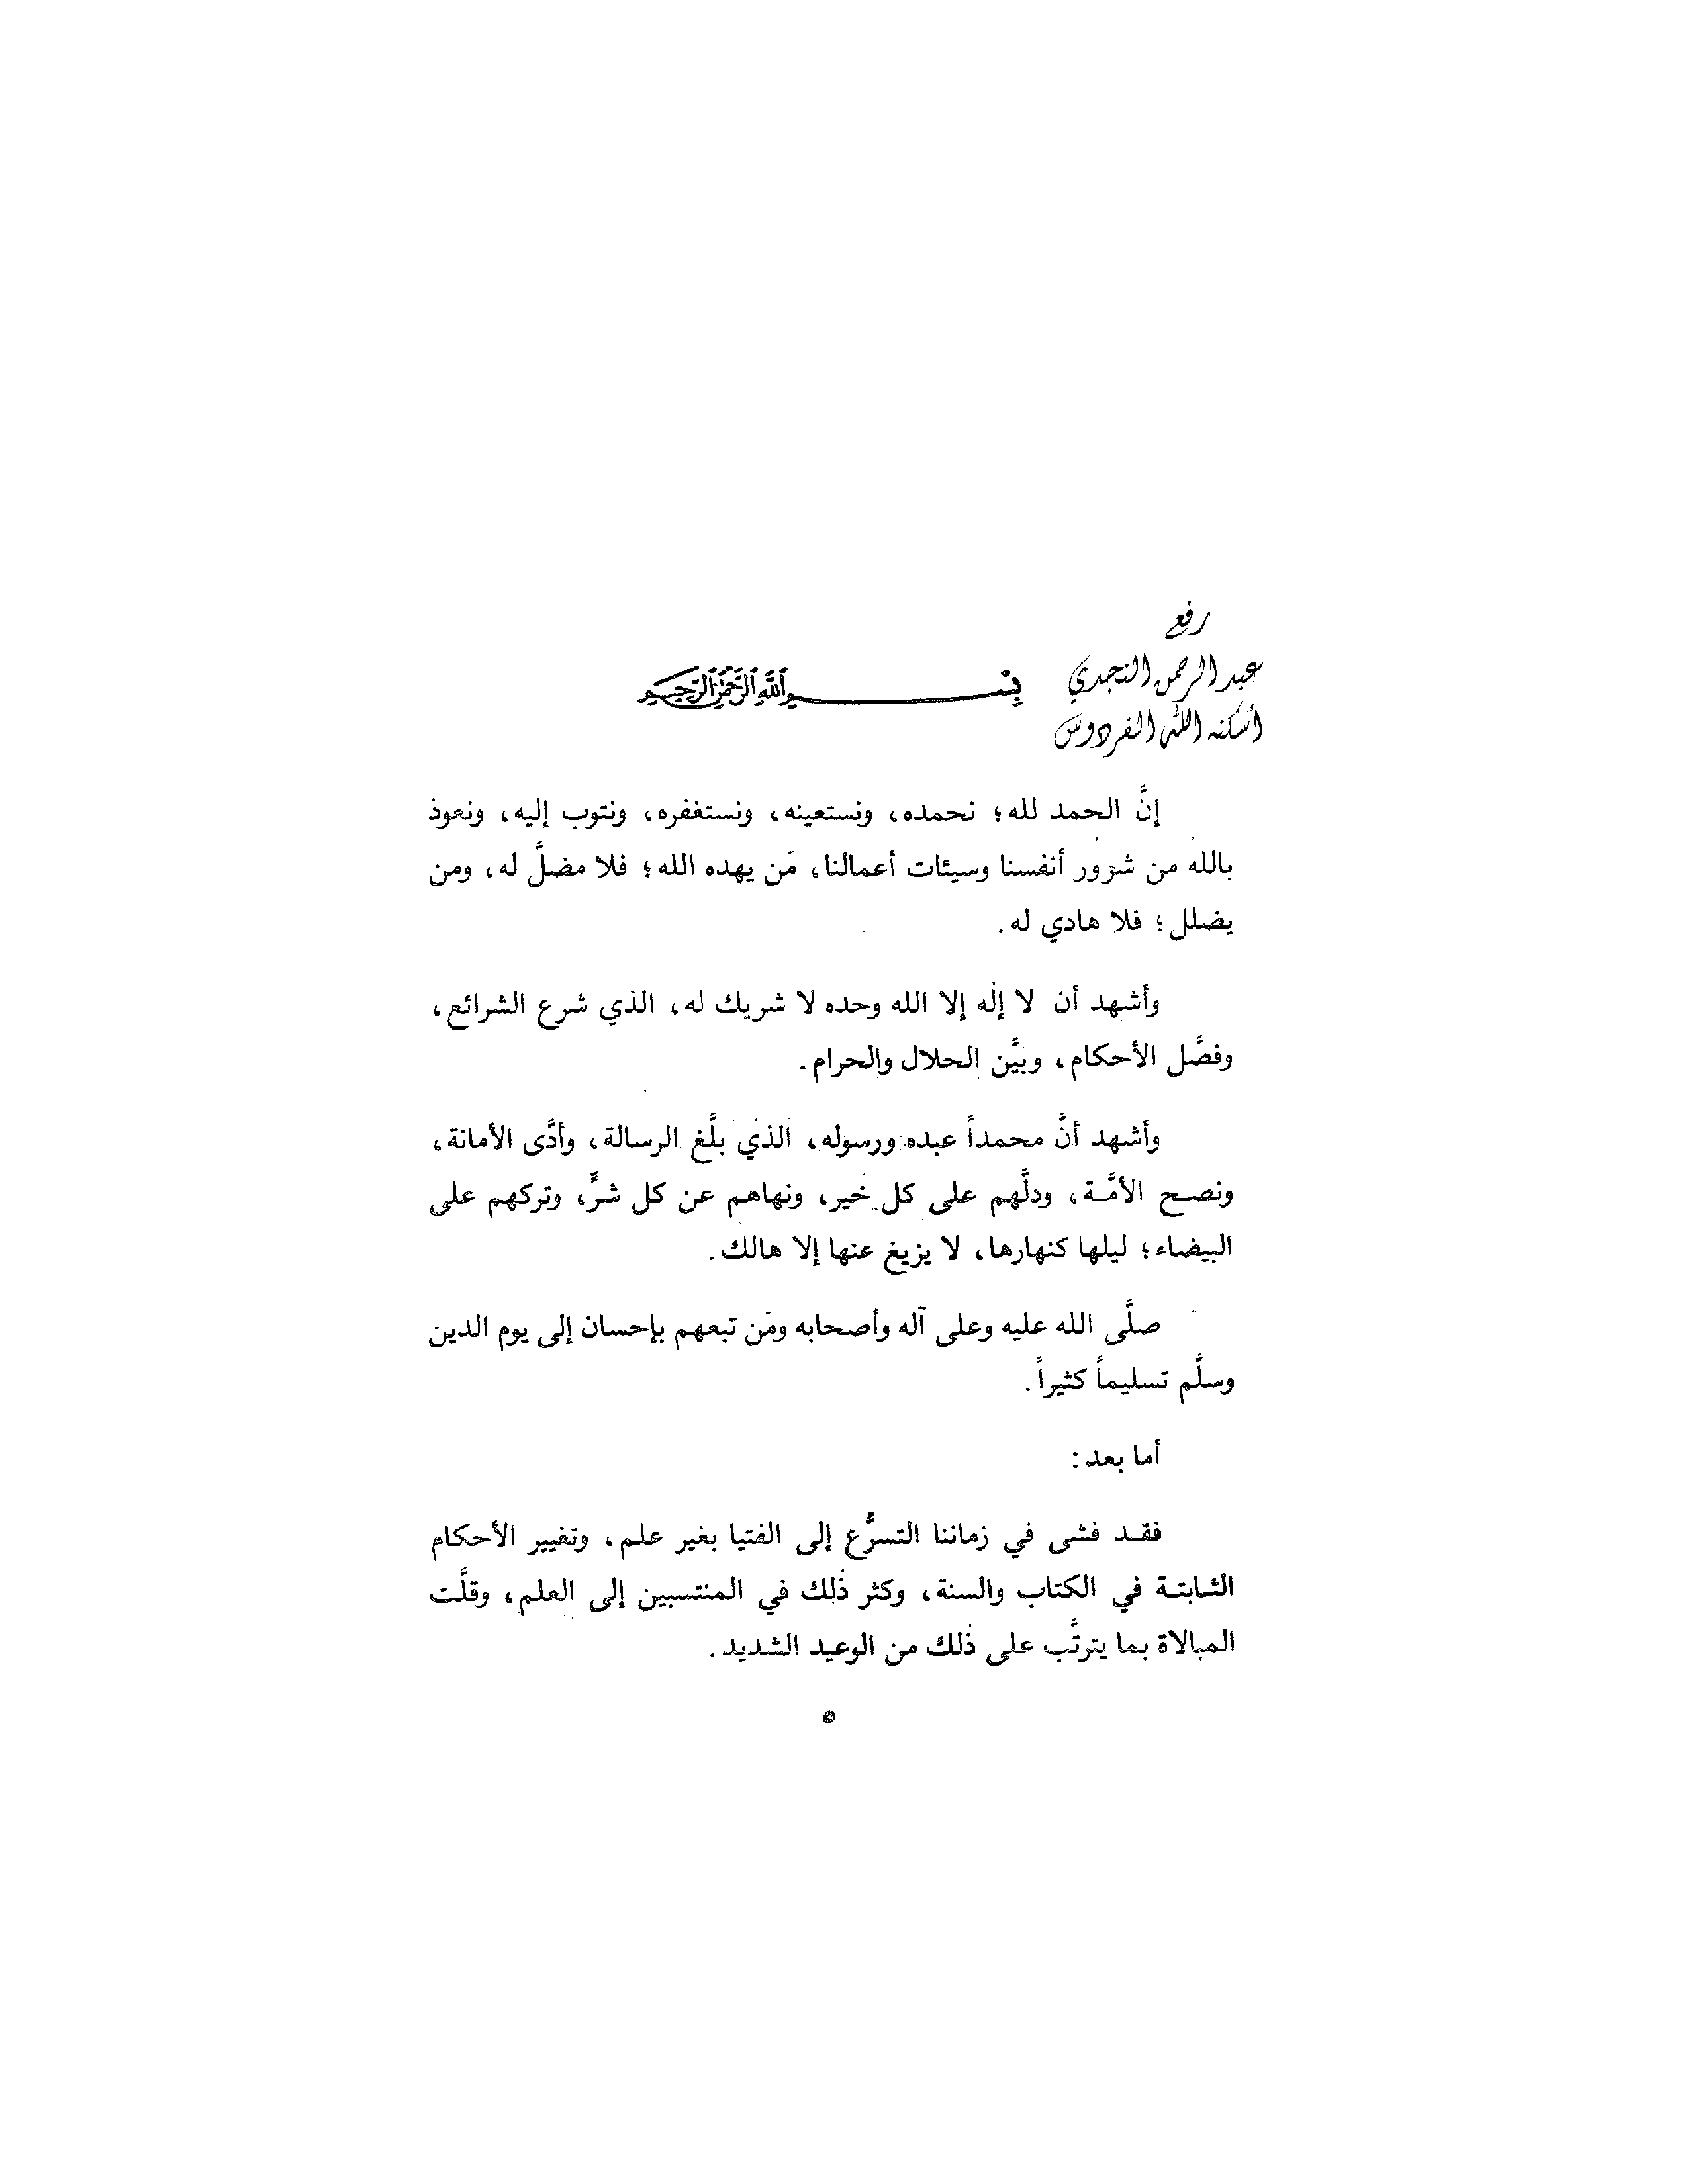 رفع
عبد الرحمن النجدي
أسكنه الله الفردوس
بِسْمِ اللَّهِ الرَّحْمَٰنِ الرَّحِيمِ
إنَّ الحمد لله؛ نحمده، ونستعينه، ونستغفره، ونتوب إليه، ونعوذ
بالله من شرور أنفسنا وسيئات أعمالنا، مَن يهده الله؛ فلا مضلَّ له، ومن
يضلل؛ فلا هادي له.
وأشهد أن لا إلٰه إلا الله وحده لا شريك له، الذي شرع الشرائع،
وفصَّل الأحكام، وبيَّن الحلال والحرام.
وأشهد أنَّ محمداً عبده ورسوله، الذي بلَّغ الرسالة، وأدَّى الأمانة،
ونصح الأمَّـة، ودلَّهم على كل خير، ونهاهم عن كل شرٍّ، وتركهم على
البيضاء؛ ليلها كنهارها، لا يزيغ عنها إلا هالك.
صلَّى الله عليه وعلى آله وأصحابه ومَن تبعهم بإحسان إلى يوم الدين
وسلَّم تسليماً كثيراً.
أما بعد:
فقـد فشى في زماننا التسرُّع إلى الفتيا بغير علم، وتغيير الأحكام
الثـابتـة في الكتاب والسنة، وكثر ذٰلك في المنتسبين إلى العلم، وقلَّت
المبالاة بما يترتَّب على ذٰلك من الوعيد الشديد.
٥